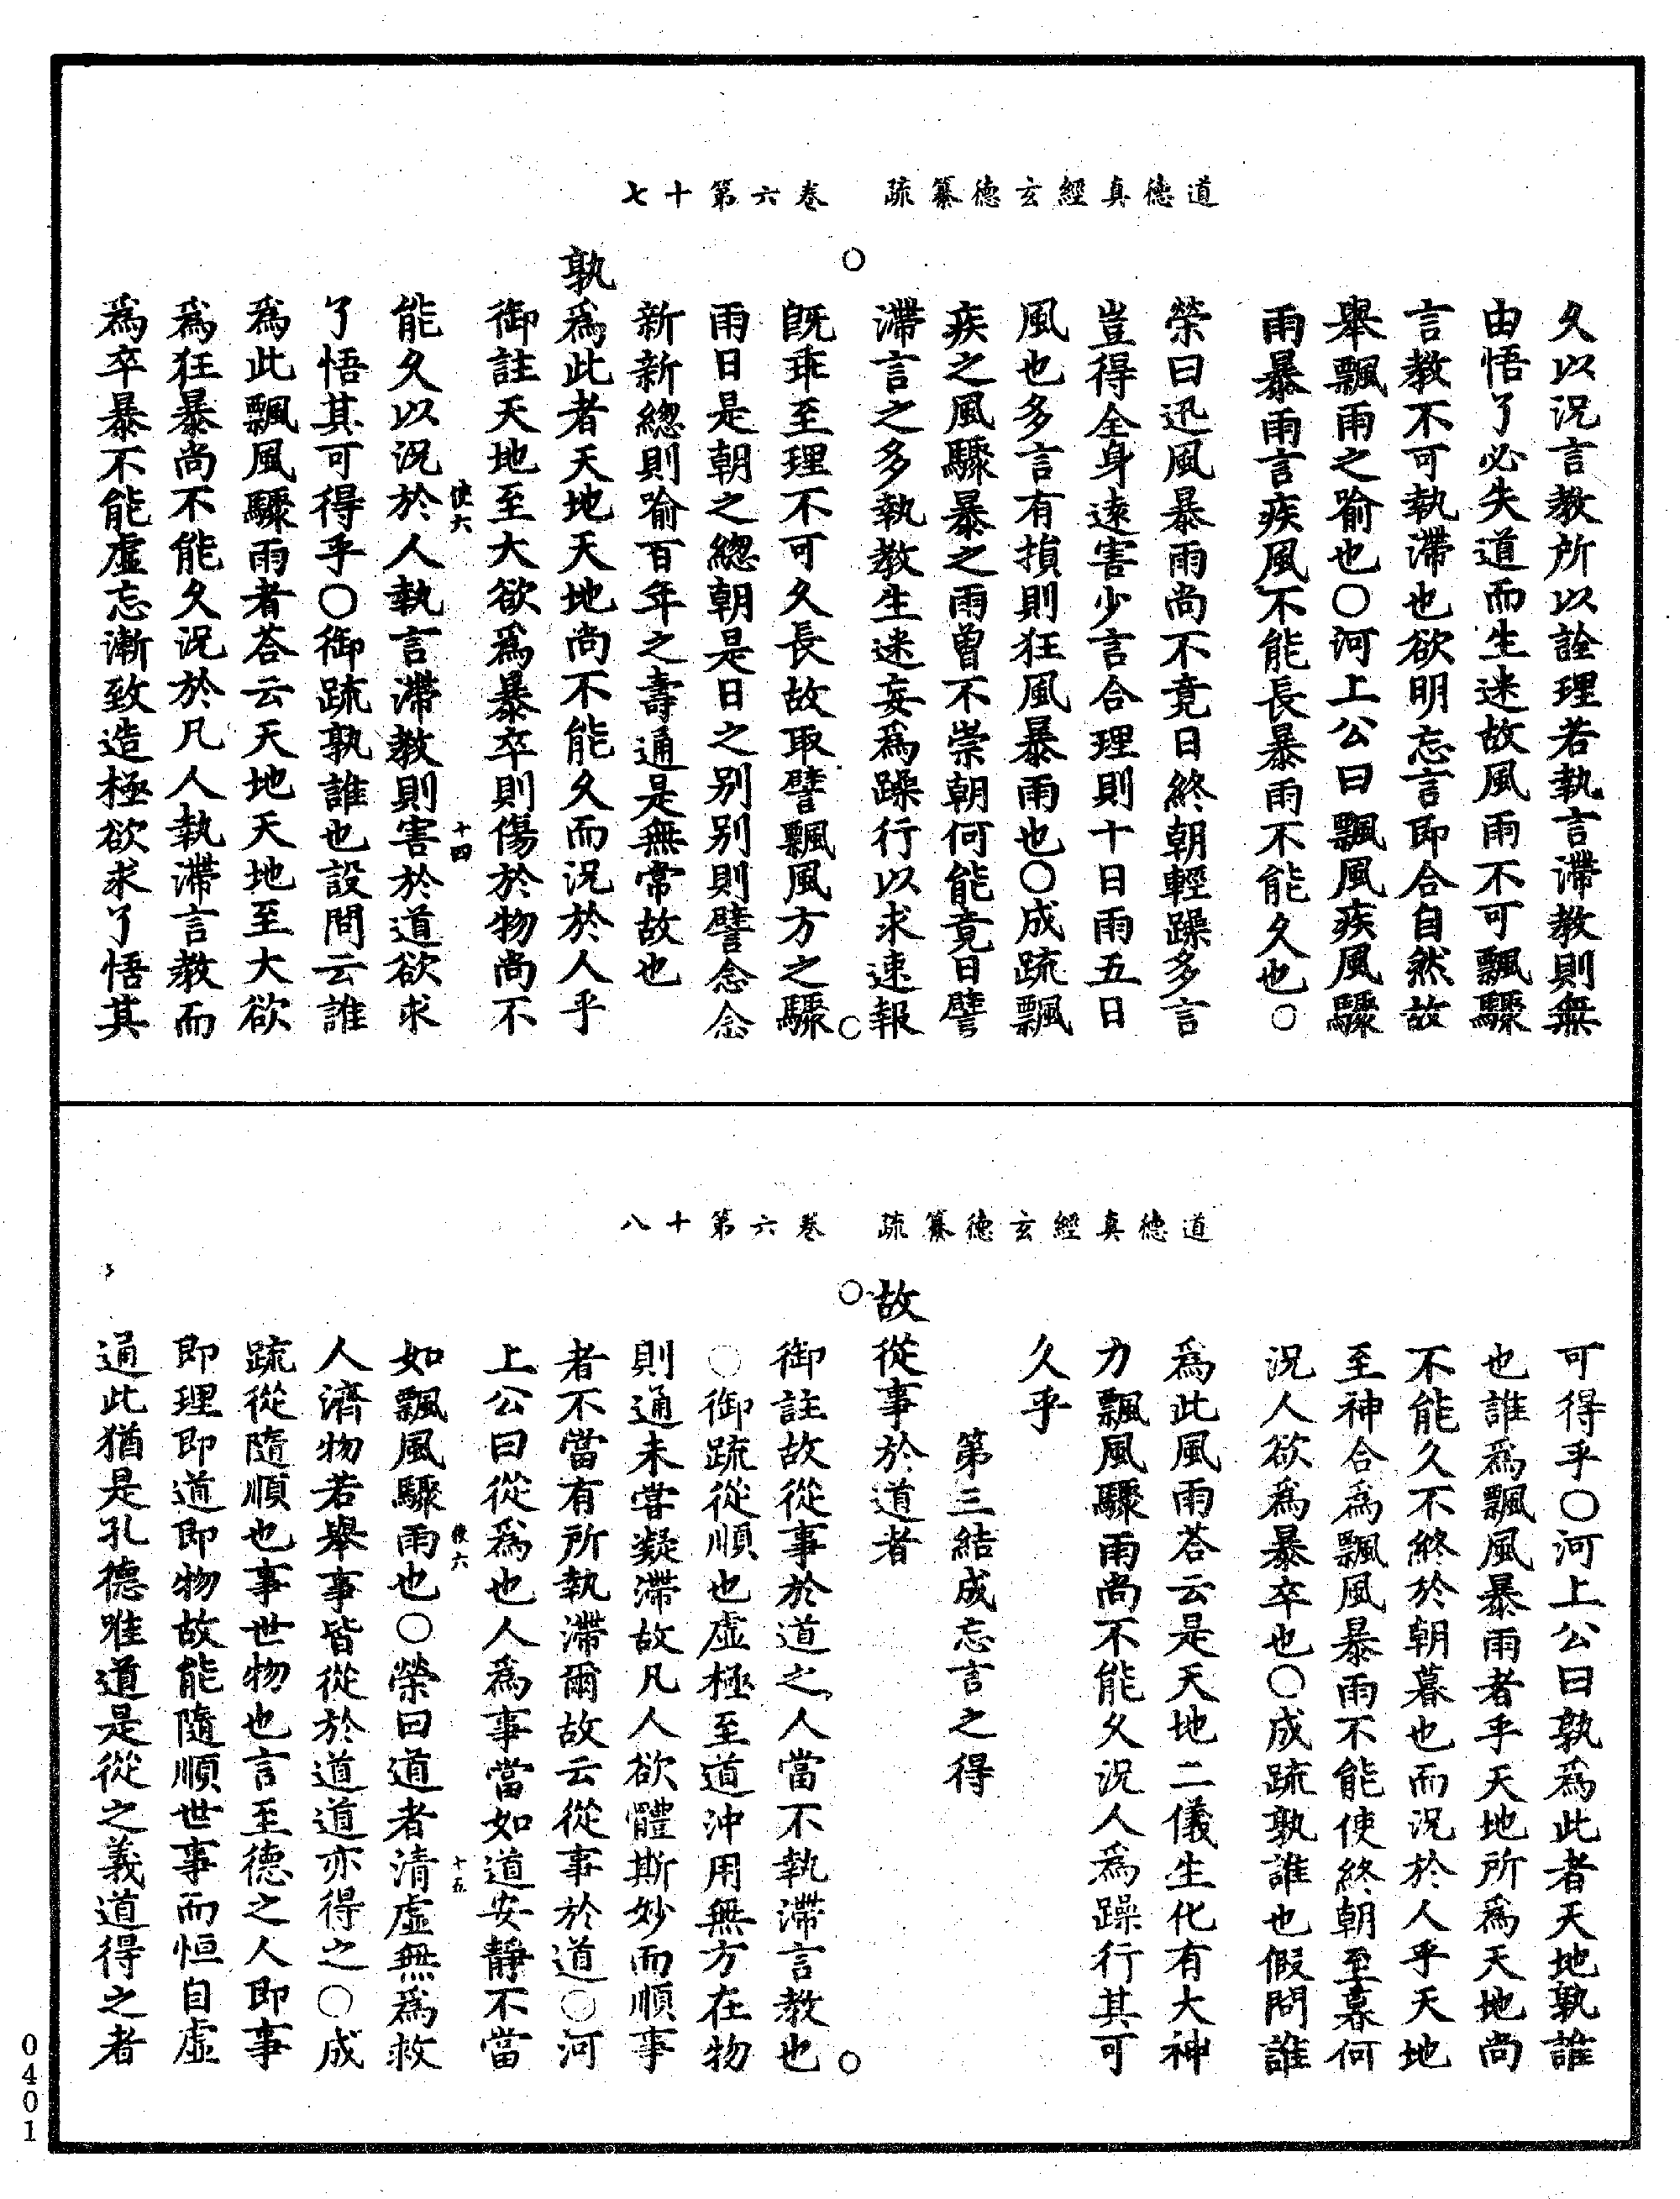 道德真經玄德纂疏　卷六第十七
久以況言教所以詮理若執言滯教則無
由悟了必失道而生迷故風雨不可飄驟
言教不可執滯也欲明忘言即合自然故
舉飄雨之喻也○河上公曰飄風疾風驟
雨暴雨言疾風不能長暴雨不能久也○
榮曰迅風暴雨尚不竟日終朝輕躁多言
豈得全身遠害少言合理則十日雨五日
風也多言有損則狂風暴雨也○成疏飄
疾之風驟暴之雨曾不崇朝何能竟日譬
滯言之多執教生迷妄為躁行以求速報
既乖至理不可久長故取譬飄風方之驟
雨日是朝之總朝是日之別別則譬念念
新新總則喻百年之壽通是無常故也
孰為此者天地天地尚不能久而況於人乎
御註天地至大欲為暴卒則傷於物尚不
使六　十四
能久以況於人執言滯教則害於道欲求
了悟其可得乎○御疏孰誰也設問云誰
為此飄風驟雨者荅云天地天地至大欲
為狂暴尚不能久況於凡人執滯言教而
為卒暴不能虛忘漸致造極欲求了悟其
道德真經玄德纂疏　卷六第十八
可得乎○河上公曰孰為此者天地孰誰
也誰為飄風暴雨者乎天地所為天地尚
不能久不終於朝暮也而況於人乎天地
至神合為飄風暴雨不能使終朝至暮何
況人欲為暴卒也○成疏孰誰也假問誰
為此風雨荅云是天地二儀生化有大神
力飄風驟雨尚不能久況人為躁行其可
久乎
第三結成忘言之得
故從事於道者
御註故從事於道之人當不執滯言教也
○御疏從順也虛極至道沖用無方在物
則通未嘗凝滯故凡人欲體斯妙而順事
者不當有所執滯爾故云從事於道○河
上公曰從為也人為事當如道安靜不當
使六　十五
如飄風驟雨也○榮曰道者清虛無為救
人濟物若舉事皆從於道道亦得之○成
疏從隨順也事世物也言至德之人即事
即理即道即物故能隨順世事而恒自虛
通此猶是孔德唯道是從之義道得之者
0401